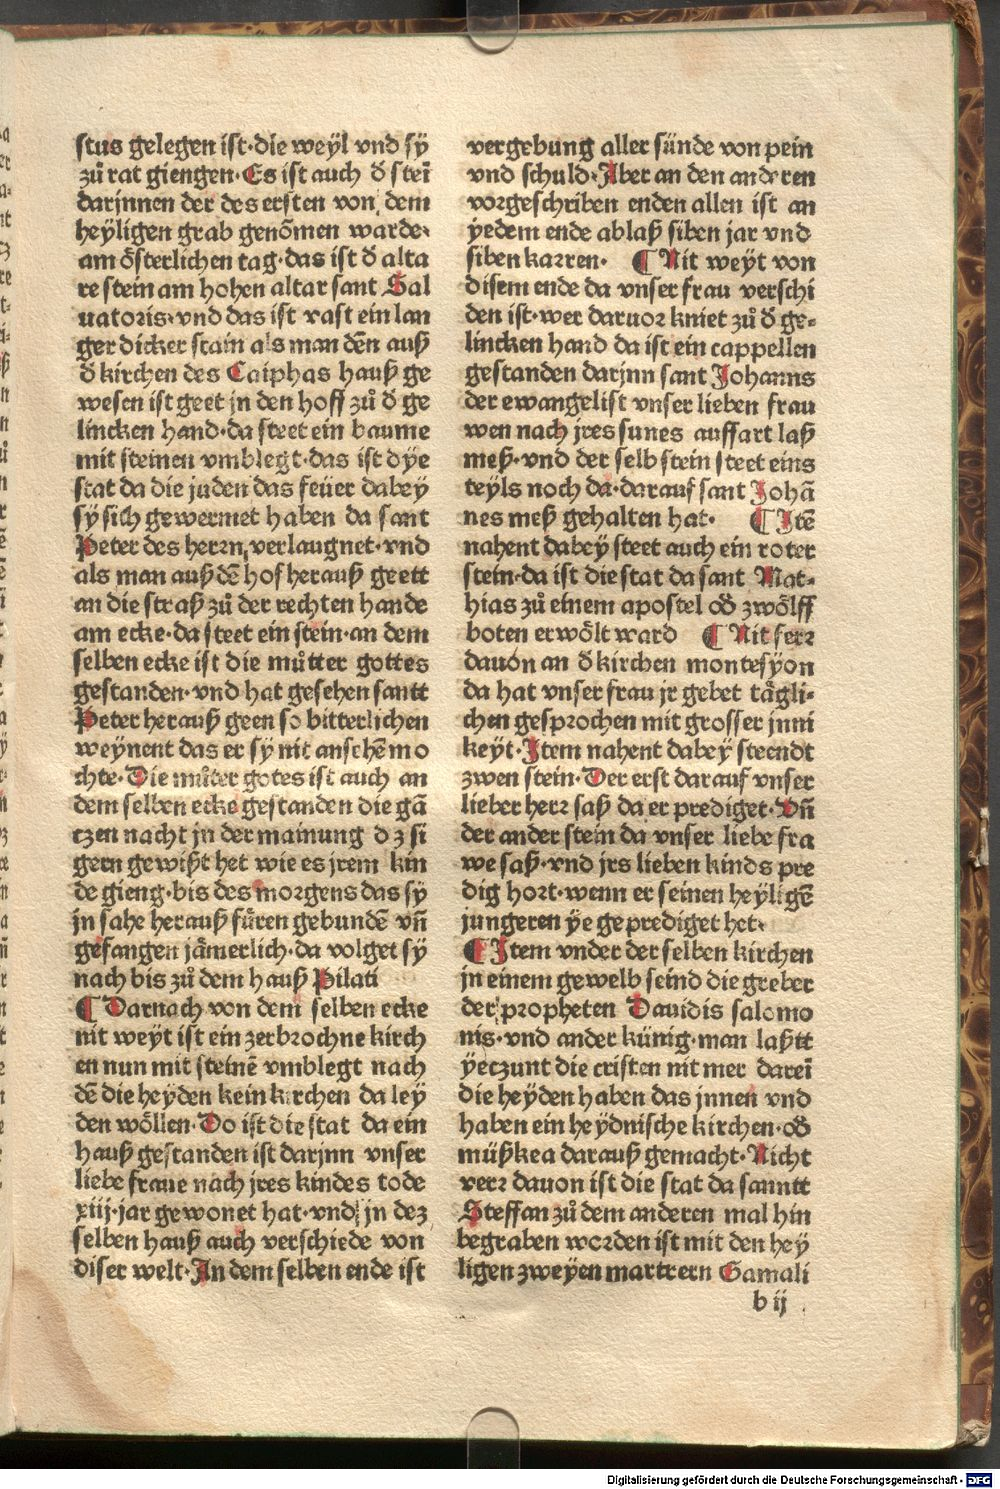 stus gelegen ist·die weyl vnd sy
zů rat giengen·Es ist auch đ steī
darjnnen der des ersten von dem
heyligen grab genõmen warde·
am österlichen tag·das ist đ alta
re stein am hohen altar sant Sal
uatoris·vnd das ist vast ein lan
ger dicker stain als man dēn auß
đ kirchen des Caiphas hauß ge
wesen ist geet jn den hoff zů đ ge
lincken hand·da steet ein baume
mit steinen vmblegt·das ist dye
stat da die juden das feüer dabey
sy sich gewermet haben da sant
Peter des herrn verlaugnet·vnd
als man auß dē hof herauß geett
an die straß zů der rechten hande
am ecke·da steet ein stein·an dem
selben ecke ist die můtter gottes
gestanden·vnd hat gesehen santt
Peter herauß geen so bitterlichen
weynent das er sy nit ansehē mo
chte·Die můter gotes ist auch an
dem selben ecke gestanden die gā
tzen nacht jn der mainung dz si
gern gewißt het wie es jrem kin
de gieng·bis des morgens das sy
jn sahe herauß füren gebundē vñ
gefangen jämerlich·da volget sy
nach bis zů dem hauß Pilati
¶ Darnach von dem selben ecke
nit weyt ist ein zerbrochne kirch
en nun mit steinē vmblegt nach
dē die heyden kein kirchen da ley
den wöllen·Do ist die stat da ein
hauß gestanden ist darjnn vnser
liebe fraue nach jres kindes tode
xiiij·jar gewonet hat·vnd jn dez
selben hauß auch verschiede von
diser welt·In dem selben ende ist
vergebung aller sünde von pein
vnd schuld·Aber an den anderen
vorgeschriben enden allen ist an
yedem ende ablaß siben jar vnd
siben karren· ¶ Nit weyt von
disem ende da vnser frau verschi
den ist·wer daruor kniet zů đ ge=
lincken hand da ist ein cappellen
gestanden darjnn sant Johanns
der ewangelist vnser lieben frau
wen nach jres sunes auffart laß
meß·vnd der selb stein steet eins
teyls noch da·darauf sant Johā
nes meß gehalten hat· ¶ Itē
nahent dabey steet auch ein roter
stein·da ist die stat da sant Mat=
hias zů einem apostel ođ zwölff
boten erwölt ward ¶ Nit ferr
dauon an đ kirchen montesyon
da hat vnser frau jr gebet tägli=
chen gesprochen mit grosser jnni
keyt·Item nahent dabey steendt
zwen stein·Der erst darauf vnser
lieber herr saß da er prediget·Vñ
der ander stein da vnser liebe fra
we saß·vnd jrs lieben kinds pre
dig hort·wenn er seinen heyligē
jungeren ye geprediget het·
¶ Item vnder der selben kirchen
jn einem gewelb seind die greber
der propheten Dauidis salomo
nis·vnd ander künig·man laßtt
yeczunt die cristen nit mer dareī
die heyden haben das jnnen vnd
haben ein heydnische kirchen·ođ
müßkea darauß gemacht·Nicht
verr dauon ist die stat da sanntt
Steffan zů dem anderen mal hin
begraben worden ist mit den hey
ligen zweyen martrern Gamali
b ij
Digitalisierung gefördert durch die Deutsche Forschungsgemeinschaft - DFG